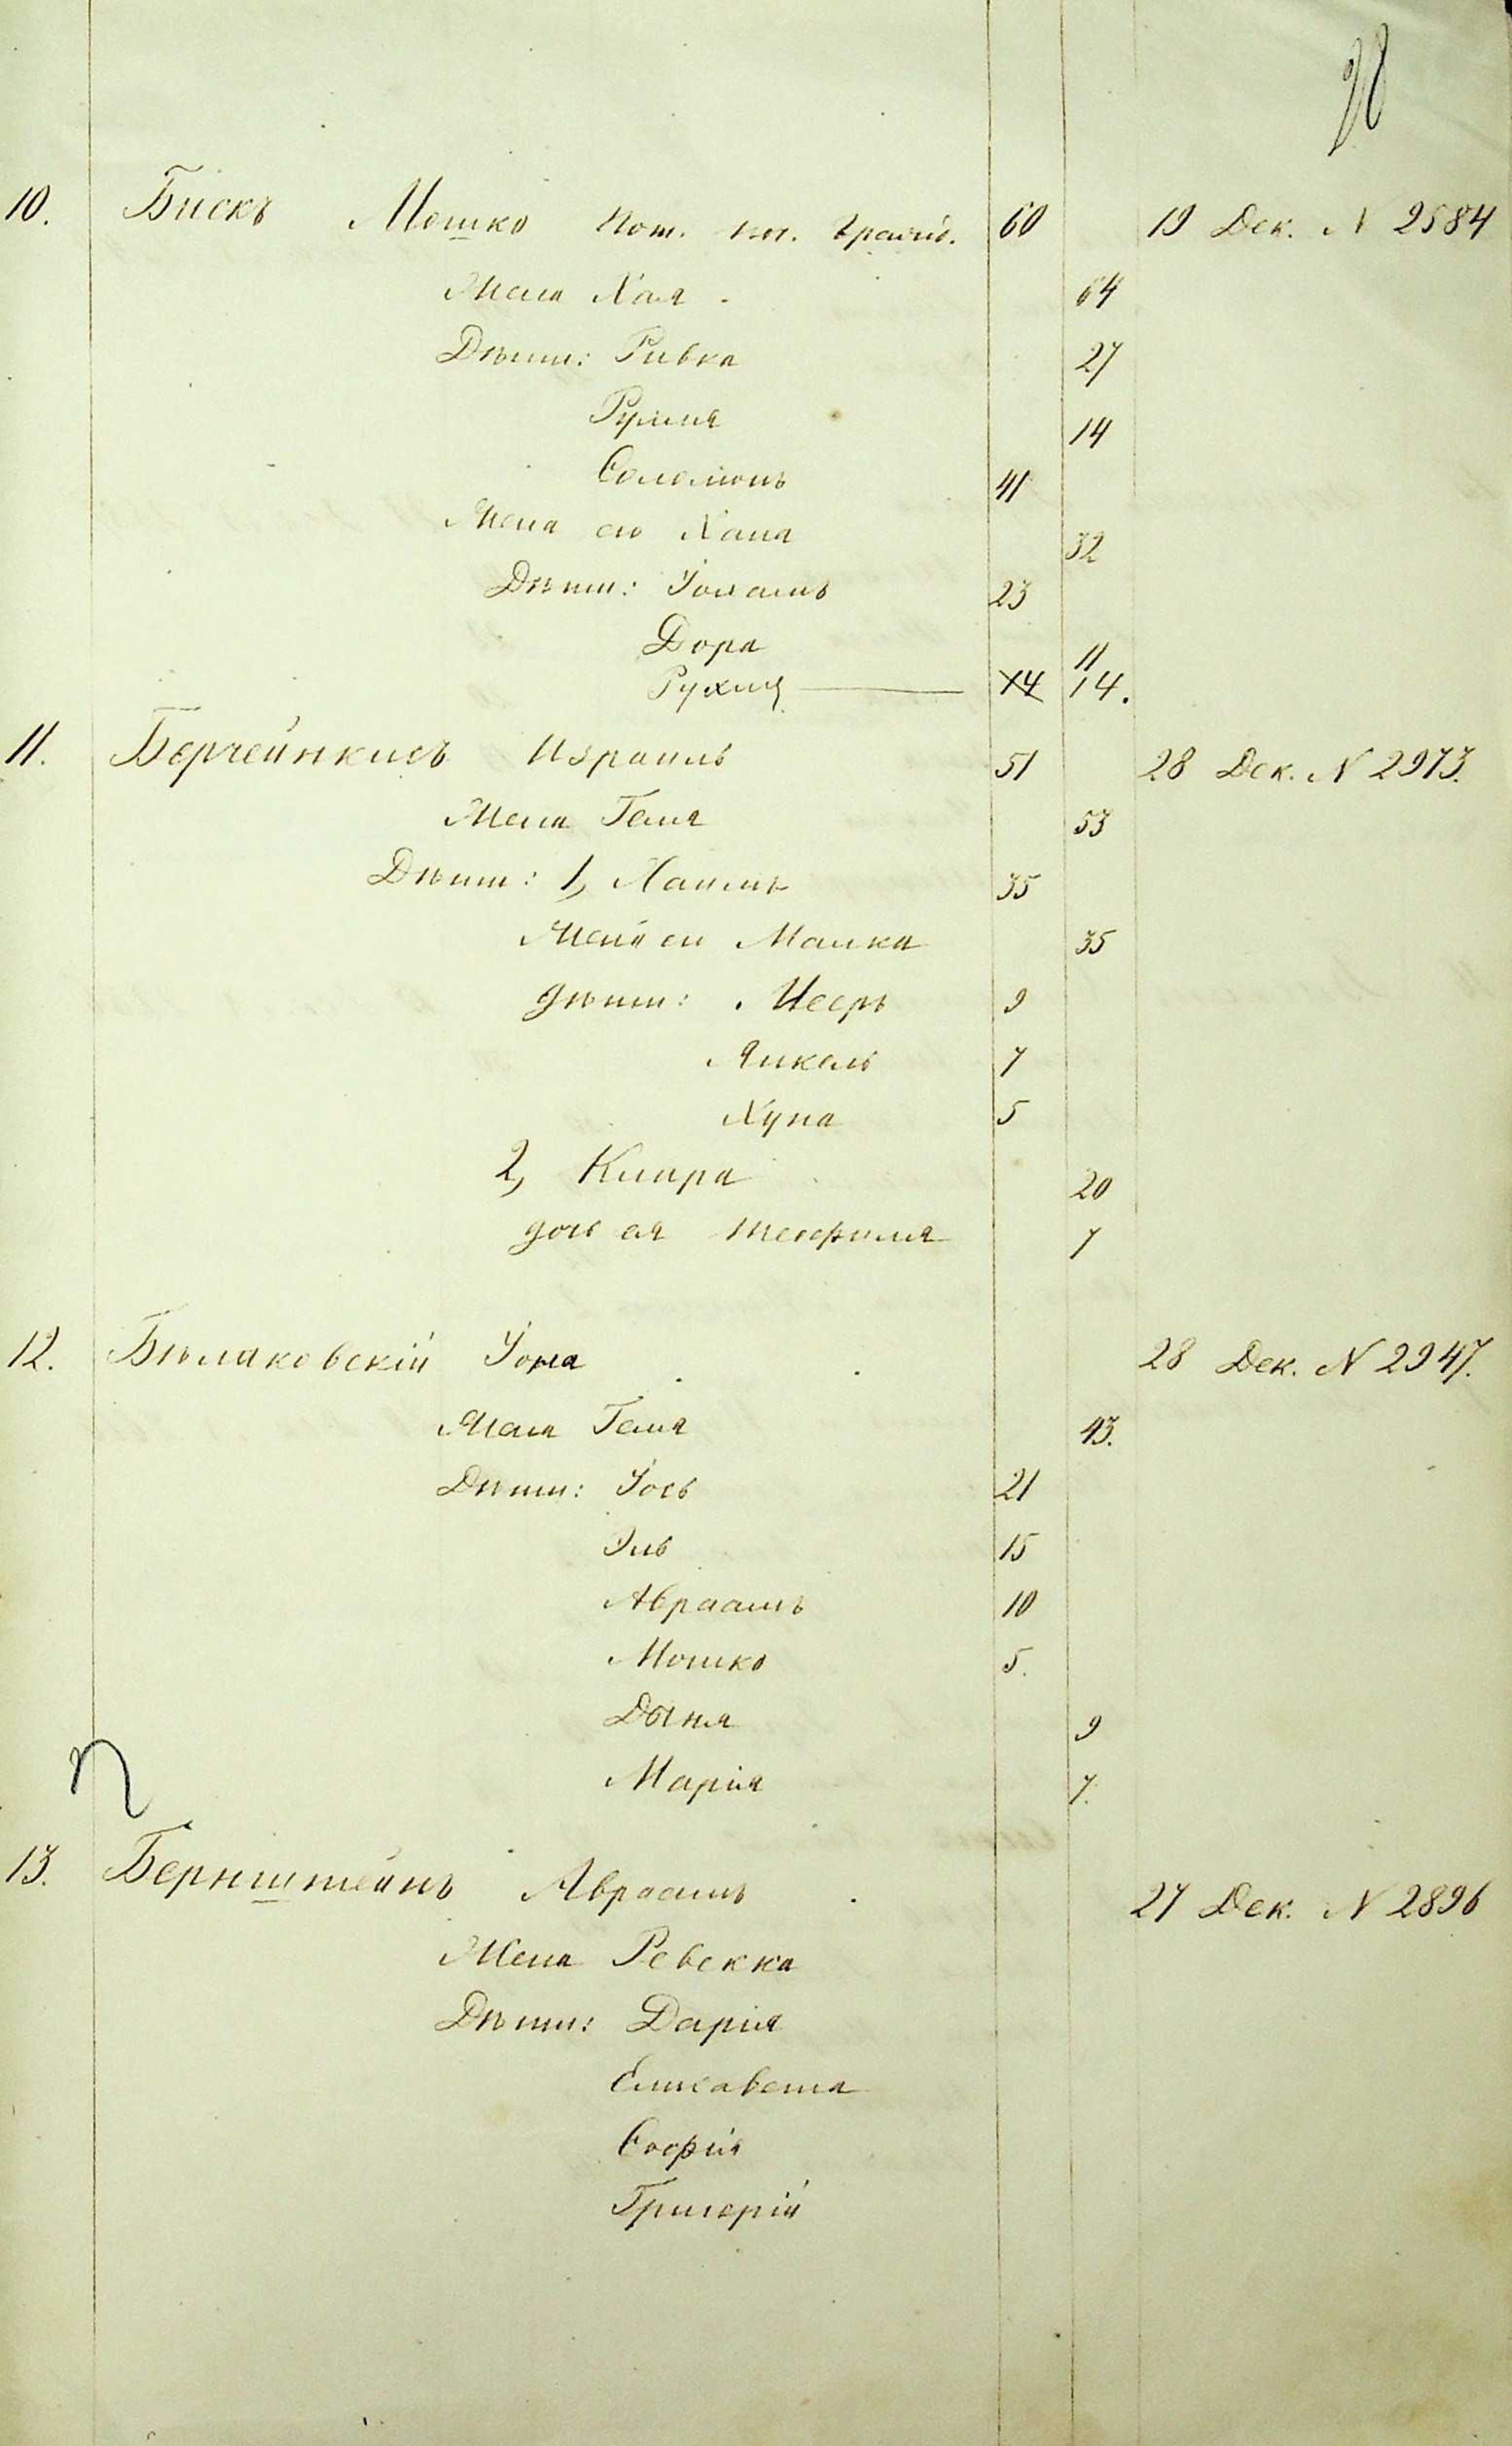 10. Бискъ Мошко Пот. поч. гражд. 60 19 Дек. N 2584
Жена Хая 64
Дѣти: Ривка 27
14
Соломонъ 41
Жена его Хана 32
Дѣти: 23
Дора 11
Рухля 14 14.
11. Израиль 51 28 Дек. N 2973.
Жена Геня 53
Дѣти: 1, Хаимъ 35
Жена его Малка 35
дѣти: Иссеръ 9
Янкель 7
Хуна 5
2, Клара 20
дочь ея Теофиля 7
12. Бѣлаковскій Іона 28 Дек. N 2947.
Жена Геня 43.
Дѣти: Іось 21
Эль 15
Авраамъ 10
Мошко 5.
Дыня 9
Марія 7.
13. Бернштейнъ Авраамъ 27 Дек. N 2896
Жена Ревекка
Дѣти: Дарія
Елисавета
Софія
Григорій